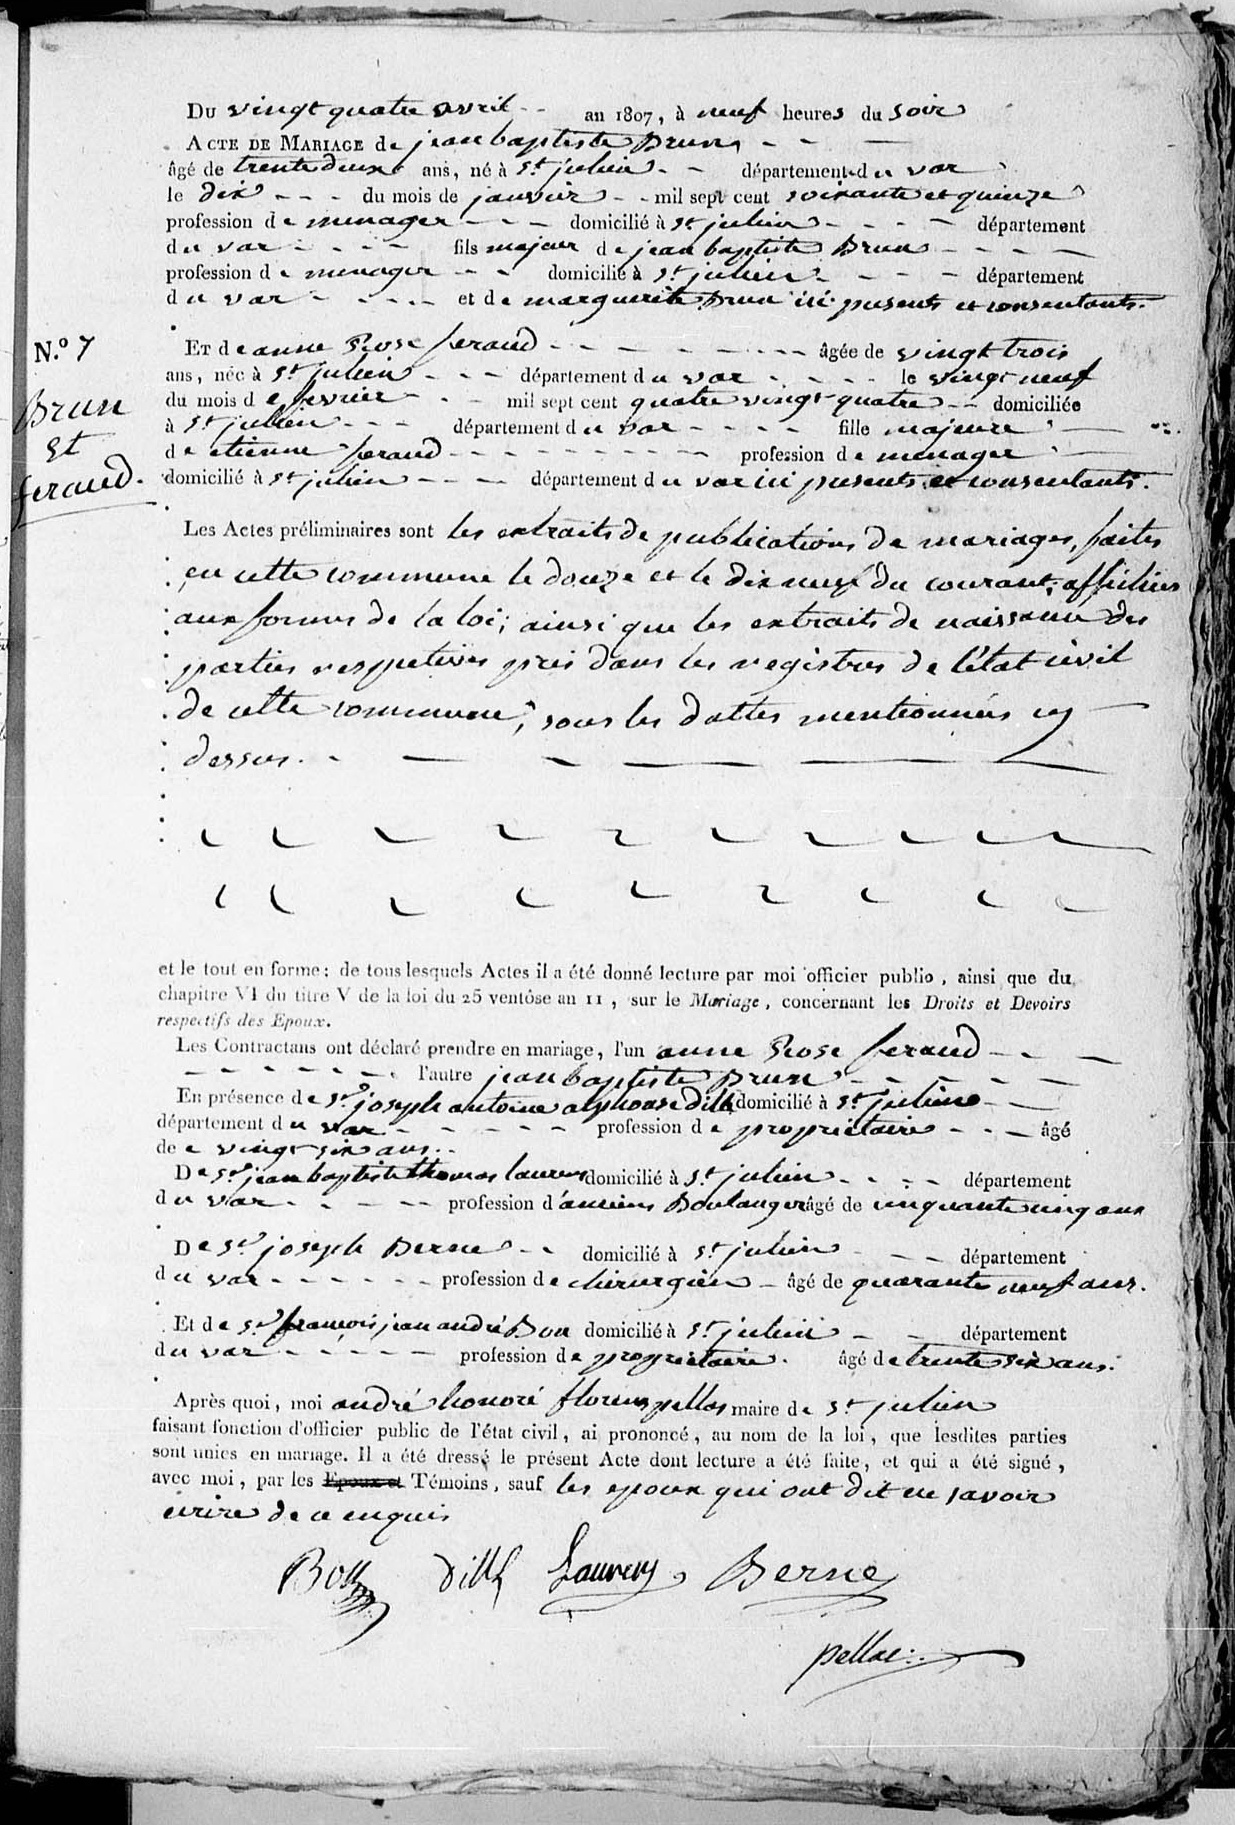 Du vingt quatre avril an 1807, à neuf heures du soir
Acte de Mariage de jean baptiste Brun
âgé de trente deux ans, né à St julien département du var
le dix du mois de janvier mil sept cent soixante et quinze
profession de menager domicilié à St julien département
du var fils majeur de jean baptiste Brun
profession de menager domicilié à St julien département
du var et de marguerite Brun ici presents et consentants.
N.º 7
Brun
Et
feraud.
Et de anne Rose feraud âgée de vingt trois
ans, née à St julien département du var le vingt neuf
du mois de fevrier mil sept cent quatre vingt quatre domiciliée
à St julien département du var fille majeure
de etienne feraud profession de menager
domicilié à St julien département du var ici presents et consentants.
Les Actes préliminaires sont les extraits de publications de mariages, faites
en cette commune le douze et le dix neuf du courant, affichées
aux formes de la loi; ainsi que les extraits de naissance des
parties respectives pris dans les registres de l'état civil
de cette commune, sous les dattes mentionnées cy
dessus.
et le tout en forme: de tous lesquels Actes il a été donné lecture par moi officier public, ainsi que du
chapitre VI du titre V de la loi du 25 ventôse an 11, sur le Mariage, concernant les Droits et Devoirs
respectifs des Epoux.
Les Contractans ont déclaré prendre en mariage, l'un anne Rose feraud
l'autre jean baptiste Brun
En présence de Sr joseph antoine alphonse dille domicilié à St julien
département du var profession de proprietaire âgé
de vingt six ans.
De Sr jean baptiste thomas laurens domicilié à St julien département
du var profession d'ancien Boulanger âgé de cinquante cinq ans
De Sr joseph Berne domicilié à St julien département
du var profession de chirurgien âgé de quarante neuf ans.
Et de Sr françois jean andré Bon domicilié à St julien département
du var profession de proprietaire. âgé de trente six ans.
Après quoi, moi andré honoré florens pellas maire de St julien
faisant fonction d'officier public de l'état civil, ai prononcé, au nom de la loi, que lesdites parties
sont unies en mariage. Il a été dressé le présent Acte dont lecture a été faite, et qui a été signé,
avec moi, par les Epoux et Témoins, sauf les epoux qui ont dit ne savoir
ecrire de ce enquis
Bon dille Laurens Berne
pellas